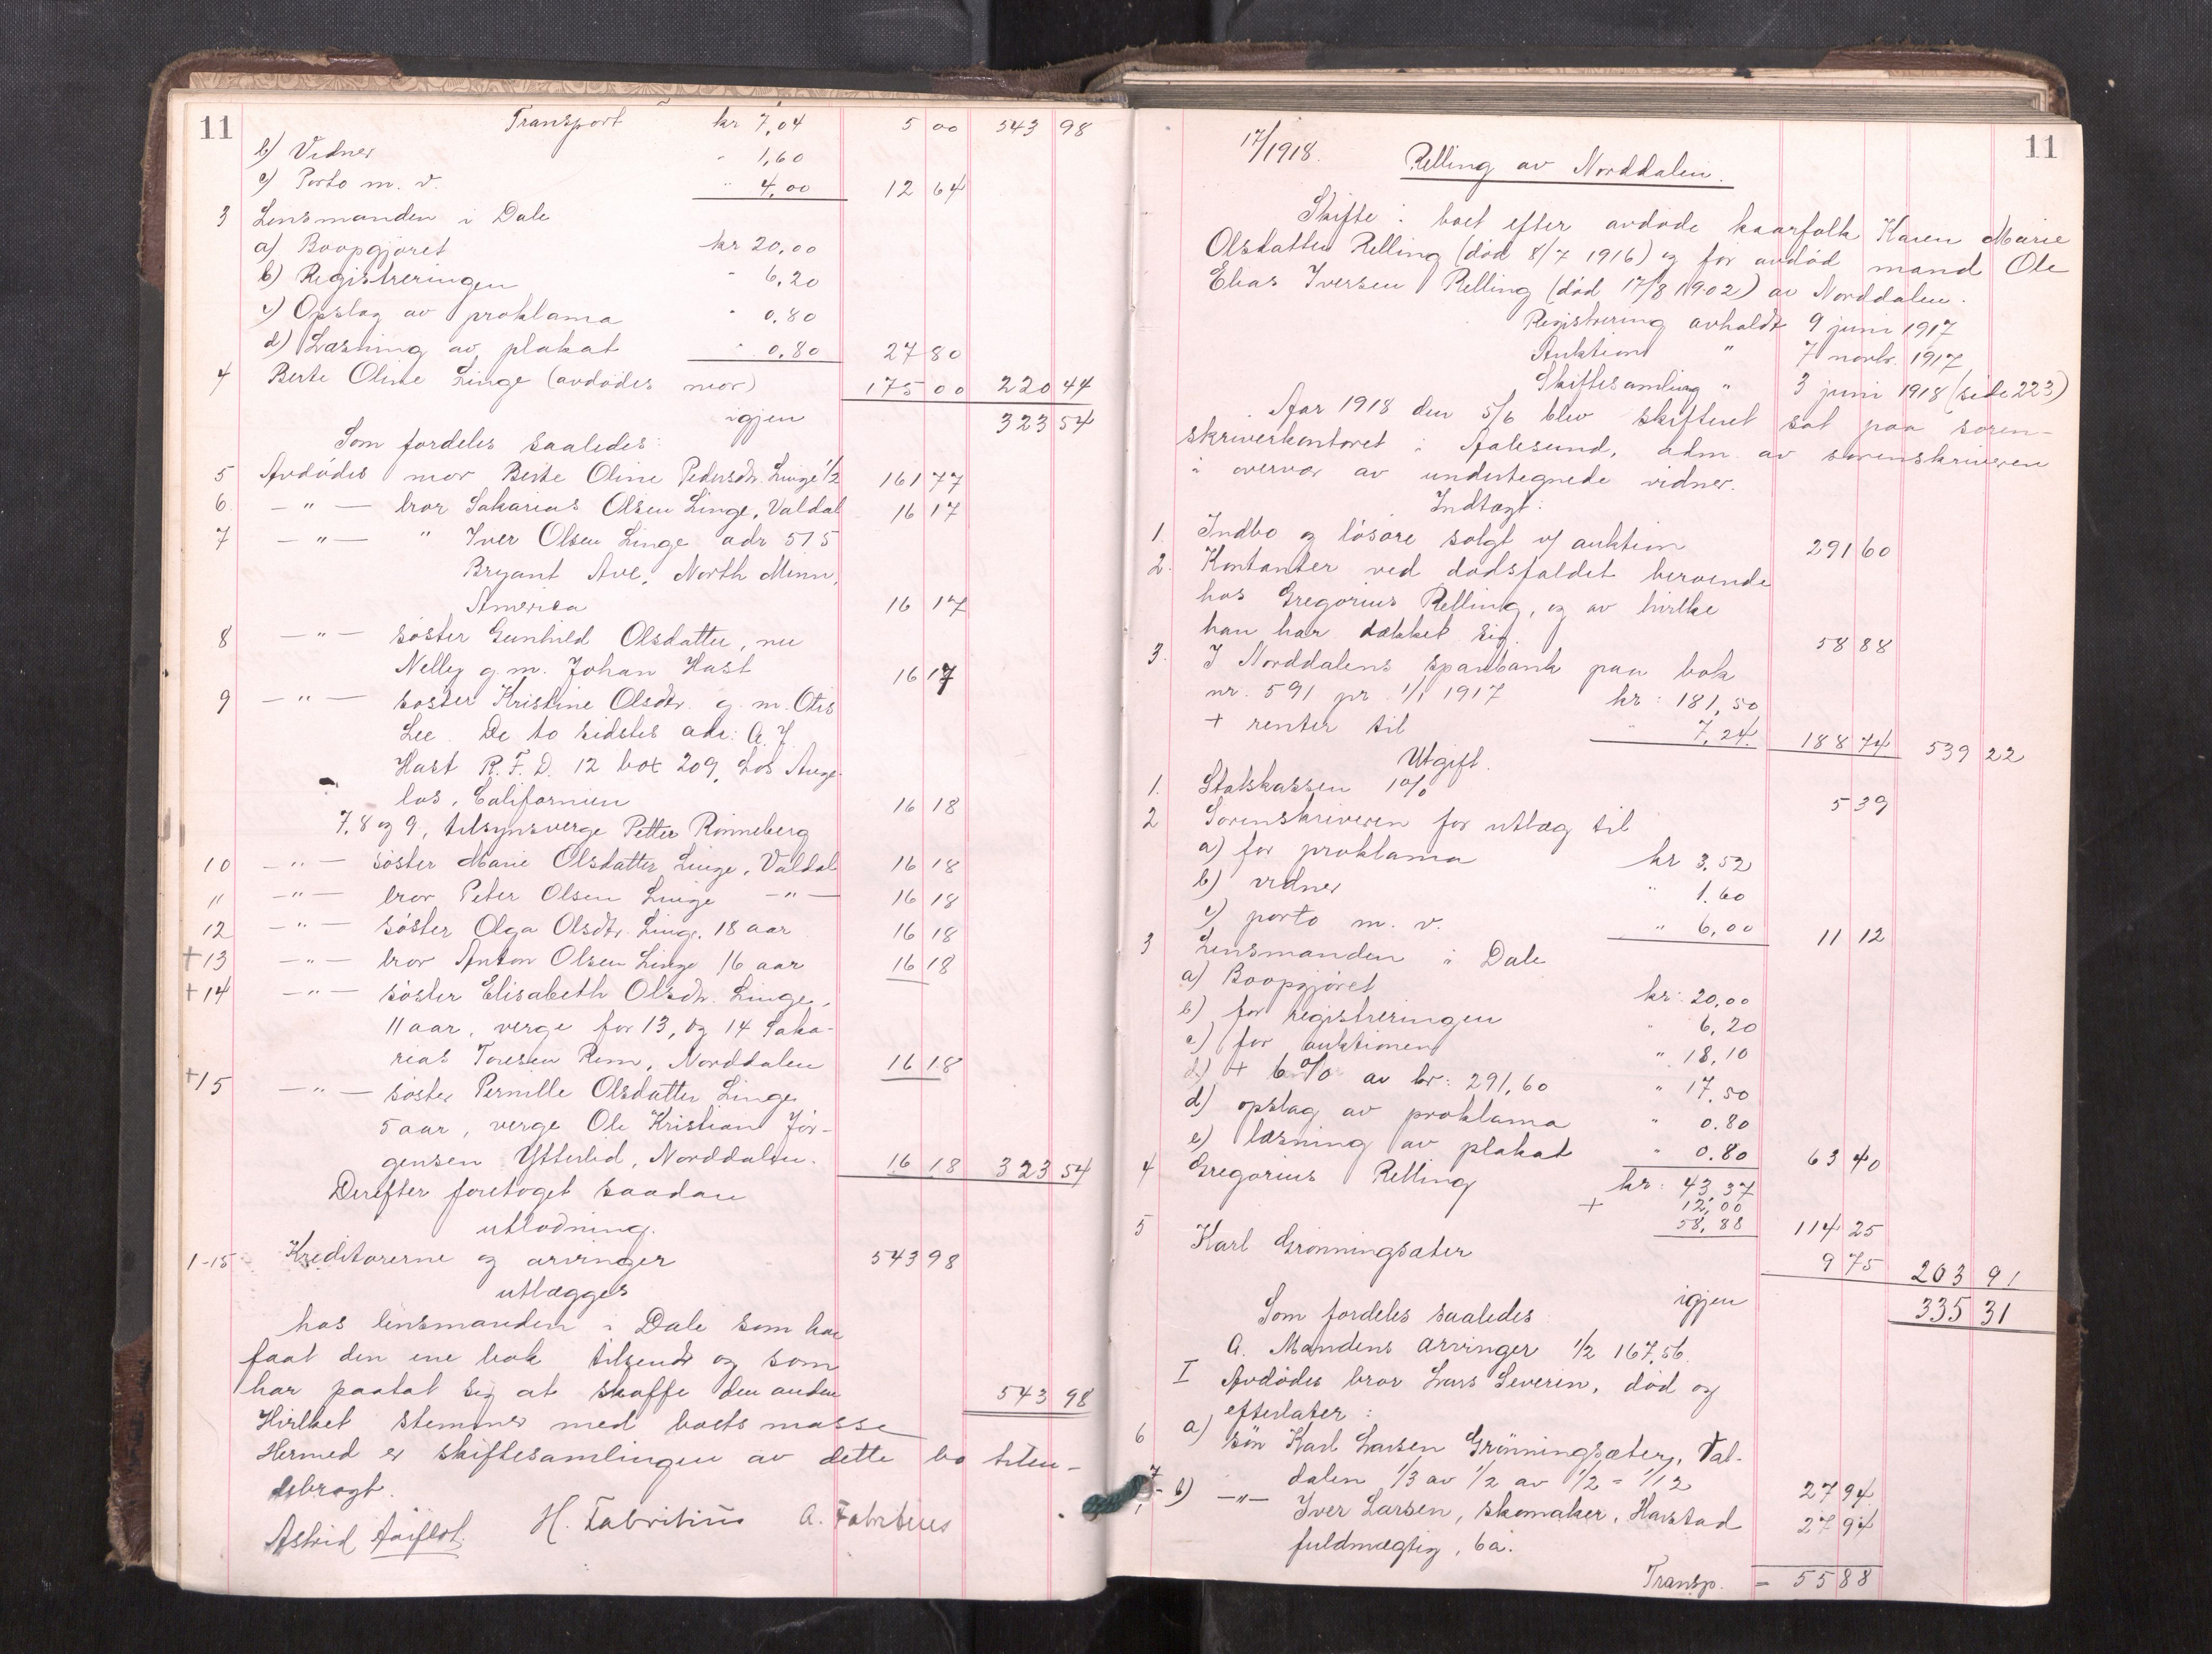 11
Transport kr 7,04 5 00 543 98
b) Vidner " 1,60
c) Porto m. v. " 4,00 12 64
3 Lensmanden i Dale
a) Boopgjøret kr 20,00
b) Registreringen " 6,20
c) Opslag av proklama " 0,80
d) Læsning av plakat " 0,80 27 80
4 Berte Oline Linge (avdødes mor) 175 00 220 44
igjen 323 54
Som fordeles saaledes:
5 Avdødes mor Berte Oline Pedersdtr. Linge 1/2 161 77
6 — " — bror Sakarias Olsen Linge, Valdal 16 17
7 — " — " Iver Olsen Linge adr 515
Bryant Ave, North Minn,
America 16 17
8 — " — søster Gunhild Olsdatter, nu
Nelly g. m. Johan Hast 16 17
9 — " — søster Kristine Olsdtr. g. m. Otis
Lee. De to sidstes adr: A. J.
Hast R. F. D. 12 box 209, Los Ange-
los, Californien 16 18
7, 8 og 9, tilsynsverge Petter Rønneberg
10 — " — søster Marie Olsdatter Linge, Valdal 16 18
11 — " — bror Peter Olsen Linge — " — 16 18
12 — " — søster Olga Olsdtr. Linge, 18 aar 16 18
+ 13 — " — bror Anton Olsen Linge 16 aar 16 18
+ 14 — " — søster Elisabeth Olsdtr. Linge,
11 aar, verge for 13, og 14 Saka-
rias Toresen Rem, Norddalen 16 18
+ 15 — " — søster Pernille Olsdatter Linge
5 aar, verge Ole Kristian Jør-
gensen Ytterlid, Norddalen. 16 18 323 54
Derefter foretoges saadan
utlodning.
1-15 Kreditorerne og arvinger 543 98
utlægges
hos lensmanden i Dale som har
faat den ene bok tilsendt og som
har paatat sig at skaffe den anden 543 98
Hvilket stemmer med boets masse
Hermed er skiftesamlingen av dette bo tilen-
debragt.
Astrid Aaflot. H. Fabritius A. Fabritius
11
17/1918. Relling av Norddalen.
Skifte i boet efter avdøde kaarfolk Karen Marie
Olsdatter Relling (død 8/7 1916) og før avdød mand Ole
Elias Iversen Relling (død 17/8 1902) av Norddalen.
Registrering avholdt 9 juni 1917
Auktion " 7 novbr. 1917
Skiftesamling " 3 juni 1918 (side 223)
Aar 1918 den 5/6 blev skifteret sat paa soren-
skriverkontoret i Aalesund, adm. av sorenskriveren
i overvær av undertegnede vidner.
Indtægt:
1. Indbo og løsøre solgt v/ auktion 291 60
2. Kontanter ved dødsfaldet beroende
hos Gregorius Relling, og av hvilke
han har dækket sig. 58 88
3. I Norddalens sparebank paa bok
nr. 591 pr. 1/1 1917 kr: 181,50
+ renter til " 7,24. 188 74 539 22
Utgift.
1. Statskassen 1% 5 39
2 Sorenskriveren for utlæg til
a) for proklama kr 3,52
b) vidner " 1.60
c) porto m. v. " 6,00 11 12
3 Lensmanden i Dale
a) Boopgjøret kr: 20,00
b) for registreringen " 6,20
c) for auktionen " 18,10
d) + 6% av kr: 291,60 " 17,50
d) opslag av proklama " 0.80
e) læsning av plakat " 0.80 63 40
4 Gregorius Relling kr: 43,37
+ 12,00
58,88 114 25
5 Karl Grønningsæter 9 75 203 91
igjen 335 31
Som fordeles saaledes
A. Mandens arvinger 1/2 167,56.
I Avdødes bror Lars Severin, død og
efterlater:
6 a) søn Karl Larsen Grønningsæter, Val-
dalen 1/3 av 1/2 av 1/2 = 1/12 27 94
7 b) — " — Iver Larsen, skomaker, Harstad
fuldmægtig, 6a. 27 94
Transp. = 55 88